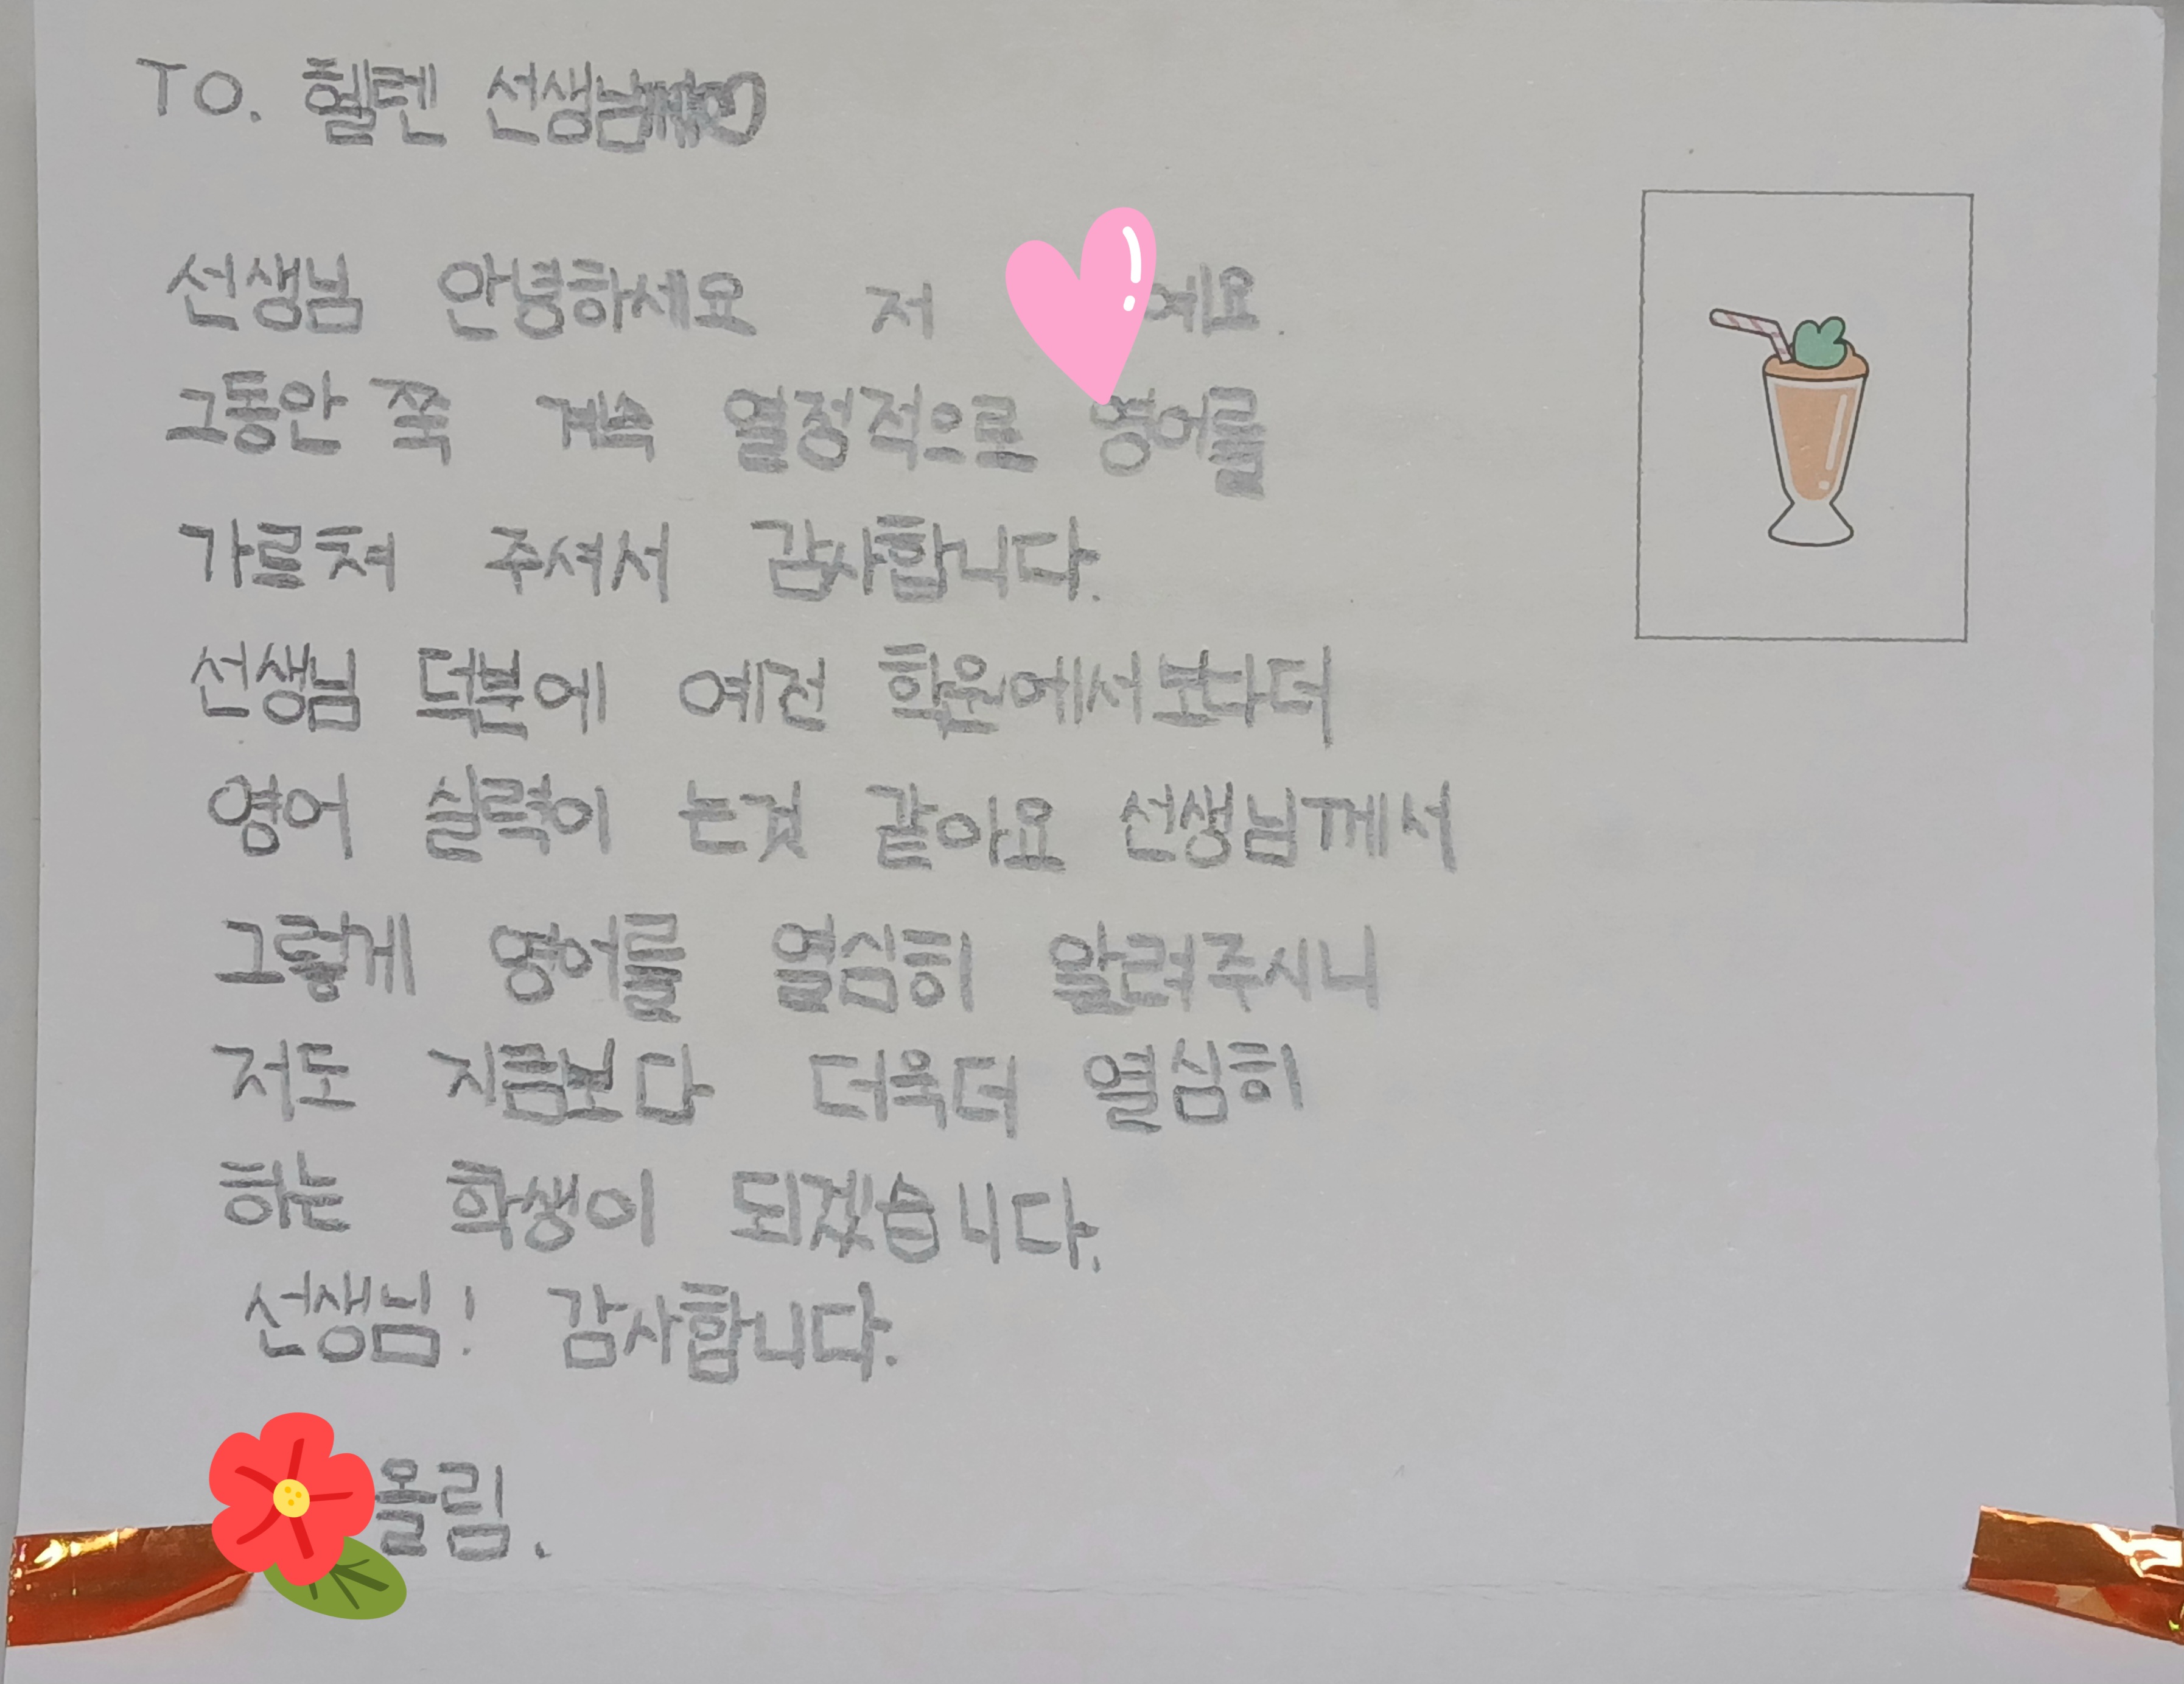 TO. 헬렌 선생님
선생님 안녕하세요 저 예요.
그동안 쭉 계속 열정적으로 영어를
가르쳐 주셔서 감사합니다.
선생님 덕분에 예전 학원에서보다더
영어 실력이 는것 같아요 선생님께서
그렇게 영어를 열심히 알려주시니
저도 지금보다 더욱더 열심히
하는 학생이 되겠습니다.
선생님! 감사합니다.
올림.